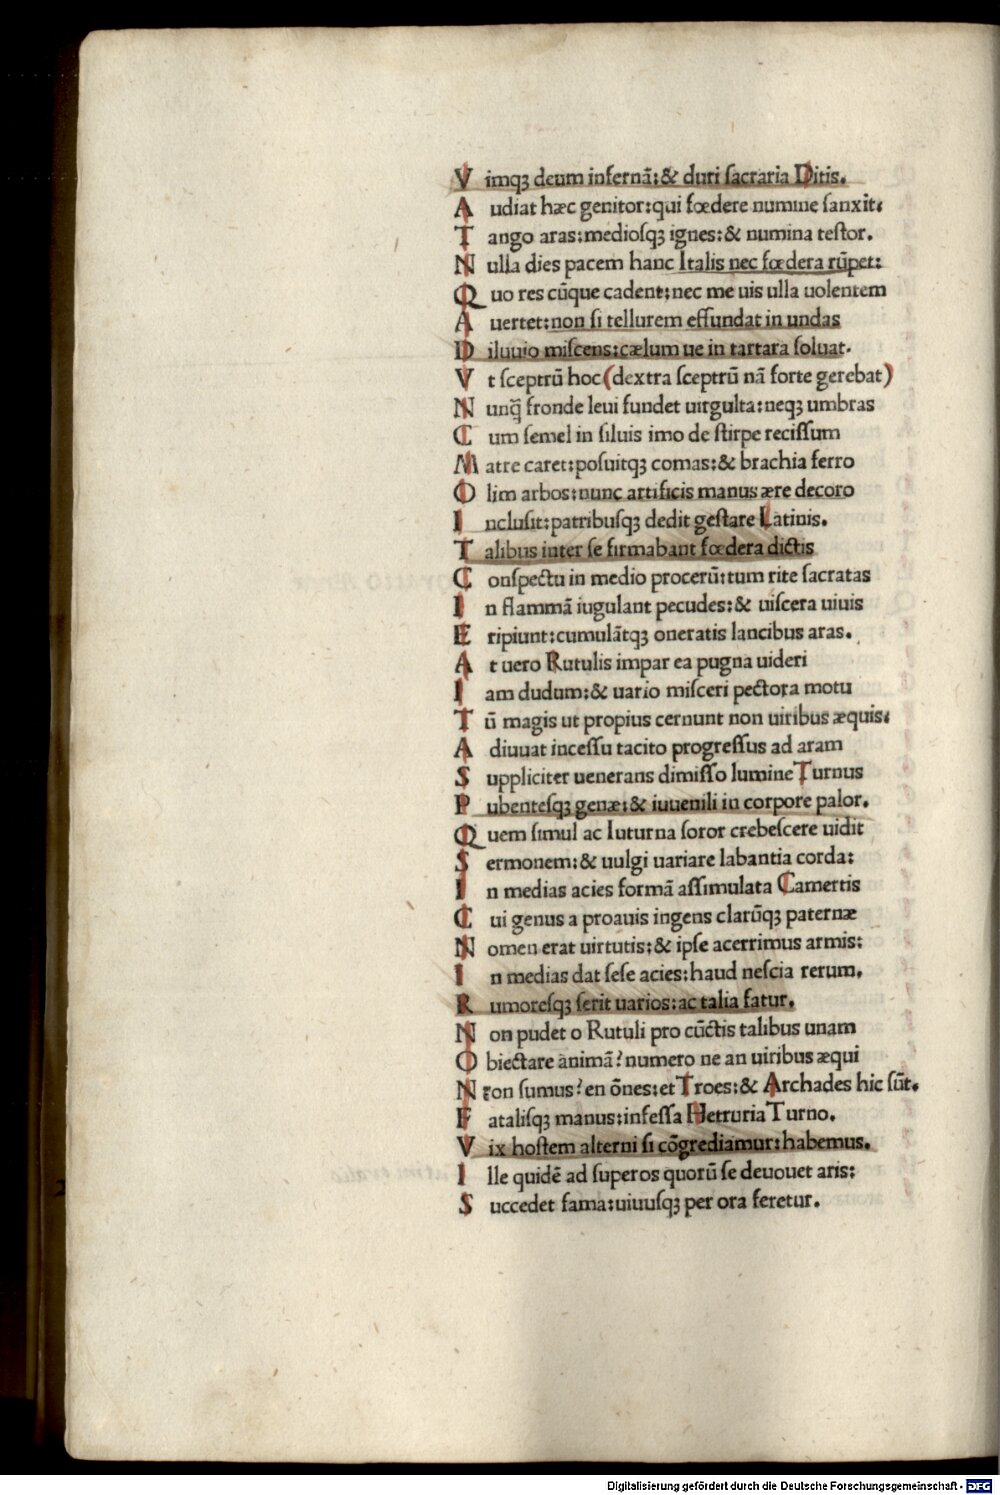 Vimqꝫ deum infernā:& duri sacraria Ditis.
Audiat hæc genitor:qui fœdere numine sanxit:
Tango aras:mediosqꝫ ignes:& numina testor.
Nulla dies pacem hanc Italis nec fœdera rūpet:
Quo res cūque cadent:nec me uis ulla uolentem
Auertet:non si tellurem effundat in undas
Diluuio miscens:cælum ue in tartara soluat.
Vt sceptrū hoc(dextra sceptrū nā forte gerebat)
Nunq̄ fronde leui fundet uirgulta:neqꝫ umbras
Cum semel in siluis imo de stirpe recissum
Matre caret:posuitqꝫ comas:& brachia ferro
Olim arbos:nunc artificis manus ære decoro
Inclusit:patribusqꝫ dedit gestare Latinis.
Talibus inter se firmabant fœdera dictis
Conspectu in medio procerū:tum rite sacratas
In flammā iugulant pecudes:& uiscera uiuis
Eripiunt:cumulātqꝫ oneratis lancibus aras.
At uero Rutulis impar ea pugna uideri
Iam dudum:& uario misceri pectora motu
Tū magis ut propius cernunt non uiribus æquis:
Adiuuat incessu tacito progressus ad aram
Suppliciter uenerans dimisso lumine Turnus
Pubentesqꝫ genæ:& iuuenili in corpore palor.
Quem simul ac Iuturna soror crebescere uidit
Sermonem:& uulgi uariare labantia corda:
In medias acies formā assimulata Camertis
Cui genus a proauis ingens clarūqꝫ paternæ
Nomen erat uirtutis:& ipse acerrimus armis:
In medias dat sese acies:haud nescia rerum.
Rumoresqꝫ serit uarios:ac talia fatur.
Non pudet o Rutuli pro cūctis talibus unam
Obiectare animā?numero ne an uiribus æqui
Non sumus?en ōnes:et Troes:& Archades hic sūt.
Fatalisqꝫ manus:infessa Hetruria Turno.
Vix hostem alterni si cōgrediamur:habemus.
Ille quidē ad superos quorū se deuouet aris:
Succedet fama:uiuusqꝫ per ora feretur.
Digitalisierung gefördert durch die Deutsche Forschungsgemeinschaft - DFG